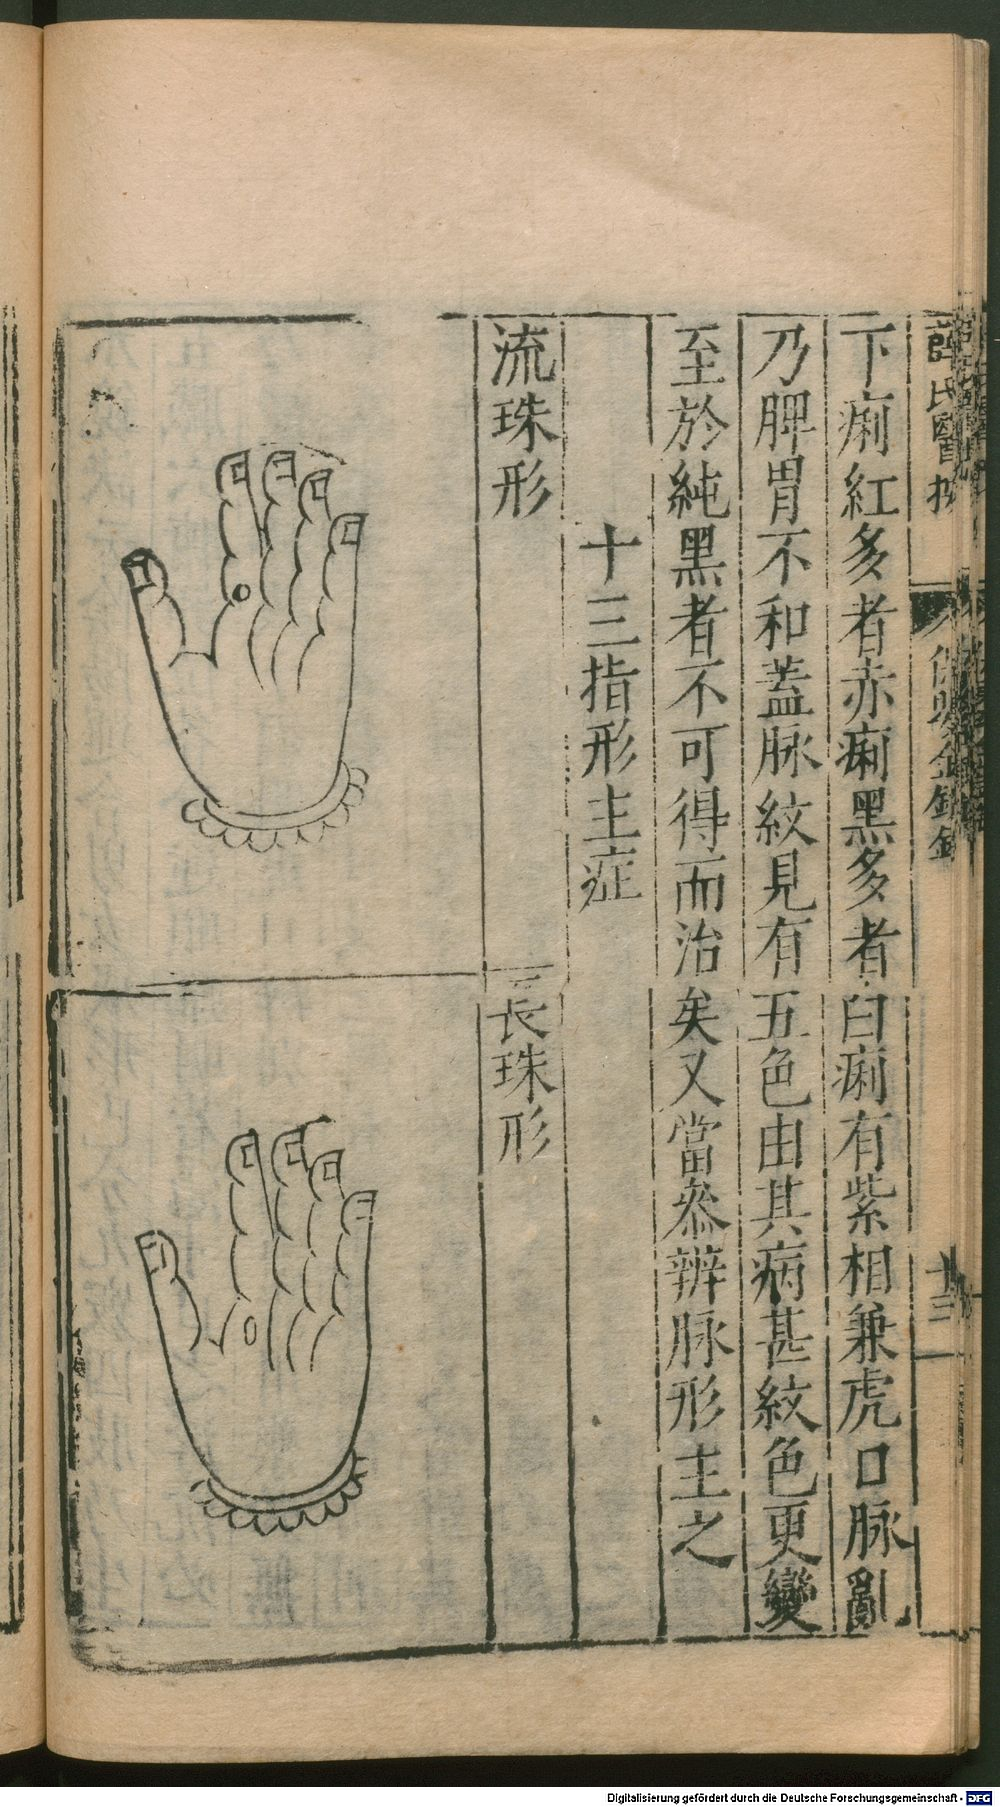 薛氏醫按
十三
下痢紅多者赤痢黑多者白痢有紫相兼虎口脉亂
乃脾胃不和蓋脉紋見有五色由其病甚紋色更變
至於純黑者不可得而治矣又當叅辨脉形主之
十三指形主症
流珠形
長珠形
Digitalisierung gefördert durch die Deutsche Forschungsgemeinschaft - DFG